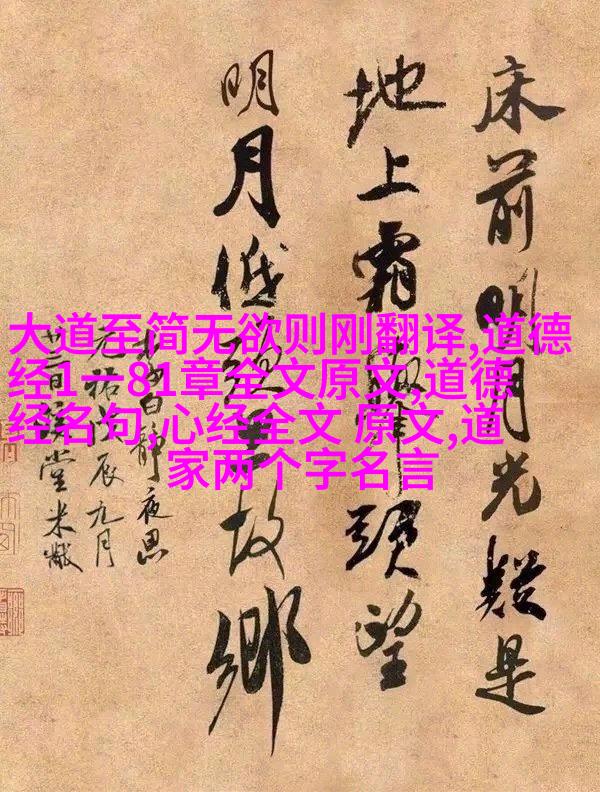 大道至简无欲则刚翻译,道德
经1一81章全文原文,道德
经名句,心经全文 原文,道
家两个字名言
床前明月光疑是
地上霜舉頭望
明月低頭思故鄉
李白靜夜思
元祐戊辰九月
廿三日溪堂米黻